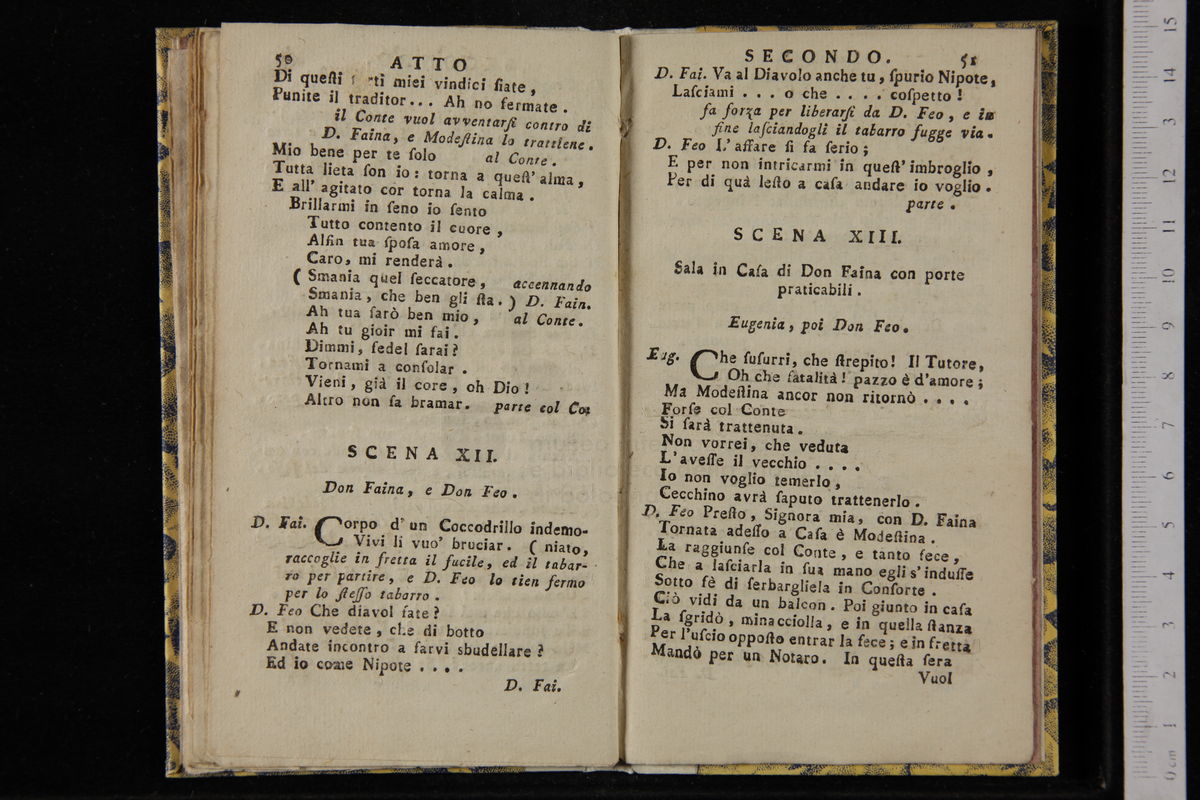 50 ATTO
Di queſti ti miei vindici ſiate,
Punite il traditor... Ah no fermate.
il Conte vuol avventarſi contro di
D. Faina, e Modeſtina lo trattiene.
Mio bene per te ſolo al Conte.
Tutta lieta ſon io: torna a queſt' alma,
E all' agitato cor torna la calma.
Brillarmi in ſeno io ſento
Tutto contento il cuore,
Alfin tua ſpoſa amore,
Caro, mi renderà.
( Smania quel ſeccatore, accennando
Smania, che ben gli ſta. ) D. Fain.
Ah tua ſarò ben mio, al Conte.
Ah tu gioir mi fai.
Dimmi, fedel ſarai?
Tornami a conſolar.
Vieni, già il core, oh Dio!
Altro non ſa bramar. parte col Co:
SCENA XII.
Don Faina, e Don Feo.
D. Fai. Corpo d' un Coccodrillo indemo-
Vivi li vuo' bruciar. ( niato,
raccoglie in fretta il fucile, ed il tabar-
ro per partire, e D. Feo lo tien fermo
per lo ſteſſo tabarro.
D. Feo Che diavol fate?
E non vedete, che di botto
Andate incontro a farvi sbudellare?
Ed io come Nipote ....
D. Fai.
SECONDO. 51
D. Fai. Va al Diavolo anche tu, ſpurio Nipote,
Laſciami ... o che .... coſpetto!
fa forza per liberarſi da D. Feo, e in
fine laſciandogli il tabarro fugge via.
D. Feo L' affare ſi fa ſerio;
E per non intricarmi in queſt' imbroglio,
Per di quà leſto a caſa andare io voglio.
parte.
SCENA XIII.
Sala in Caſa di Don Faina con porte
praticabili.
Eugenia, poi Don Feo.
Eug. Che ſuſurri, che ſtrepito! Il Tutore,
Oh che fatalità! pazzo è d'amore;
Ma Modeſtina ancor non ritornò ....
Forſe col Conte
Si ſarà trattenuta.
Non vorrei, che veduta
L'aveſſe il vecchio ....
Io non voglio temerlo,
Cecchino avrà ſaputo trattenerlo.
D. Feo Preſto, Signora mia, con D. Faina
Tornata adeſſo a Caſa è Modeſtina.
La raggiunſe col Conte, e tanto fece,
Che a laſciarla in ſua mano egli s'induſſe
Sotto fè di ſerbargliela in Conſorte.
Ciò vidi da un balcon. Poi giunto in caſa
La ſgridò, minacciolla, e in quella ſtanza
Per l'uſcio oppoſto entrar la fece; e in fretta
Mandò per un Notaro. In queſta ſera
Vuol